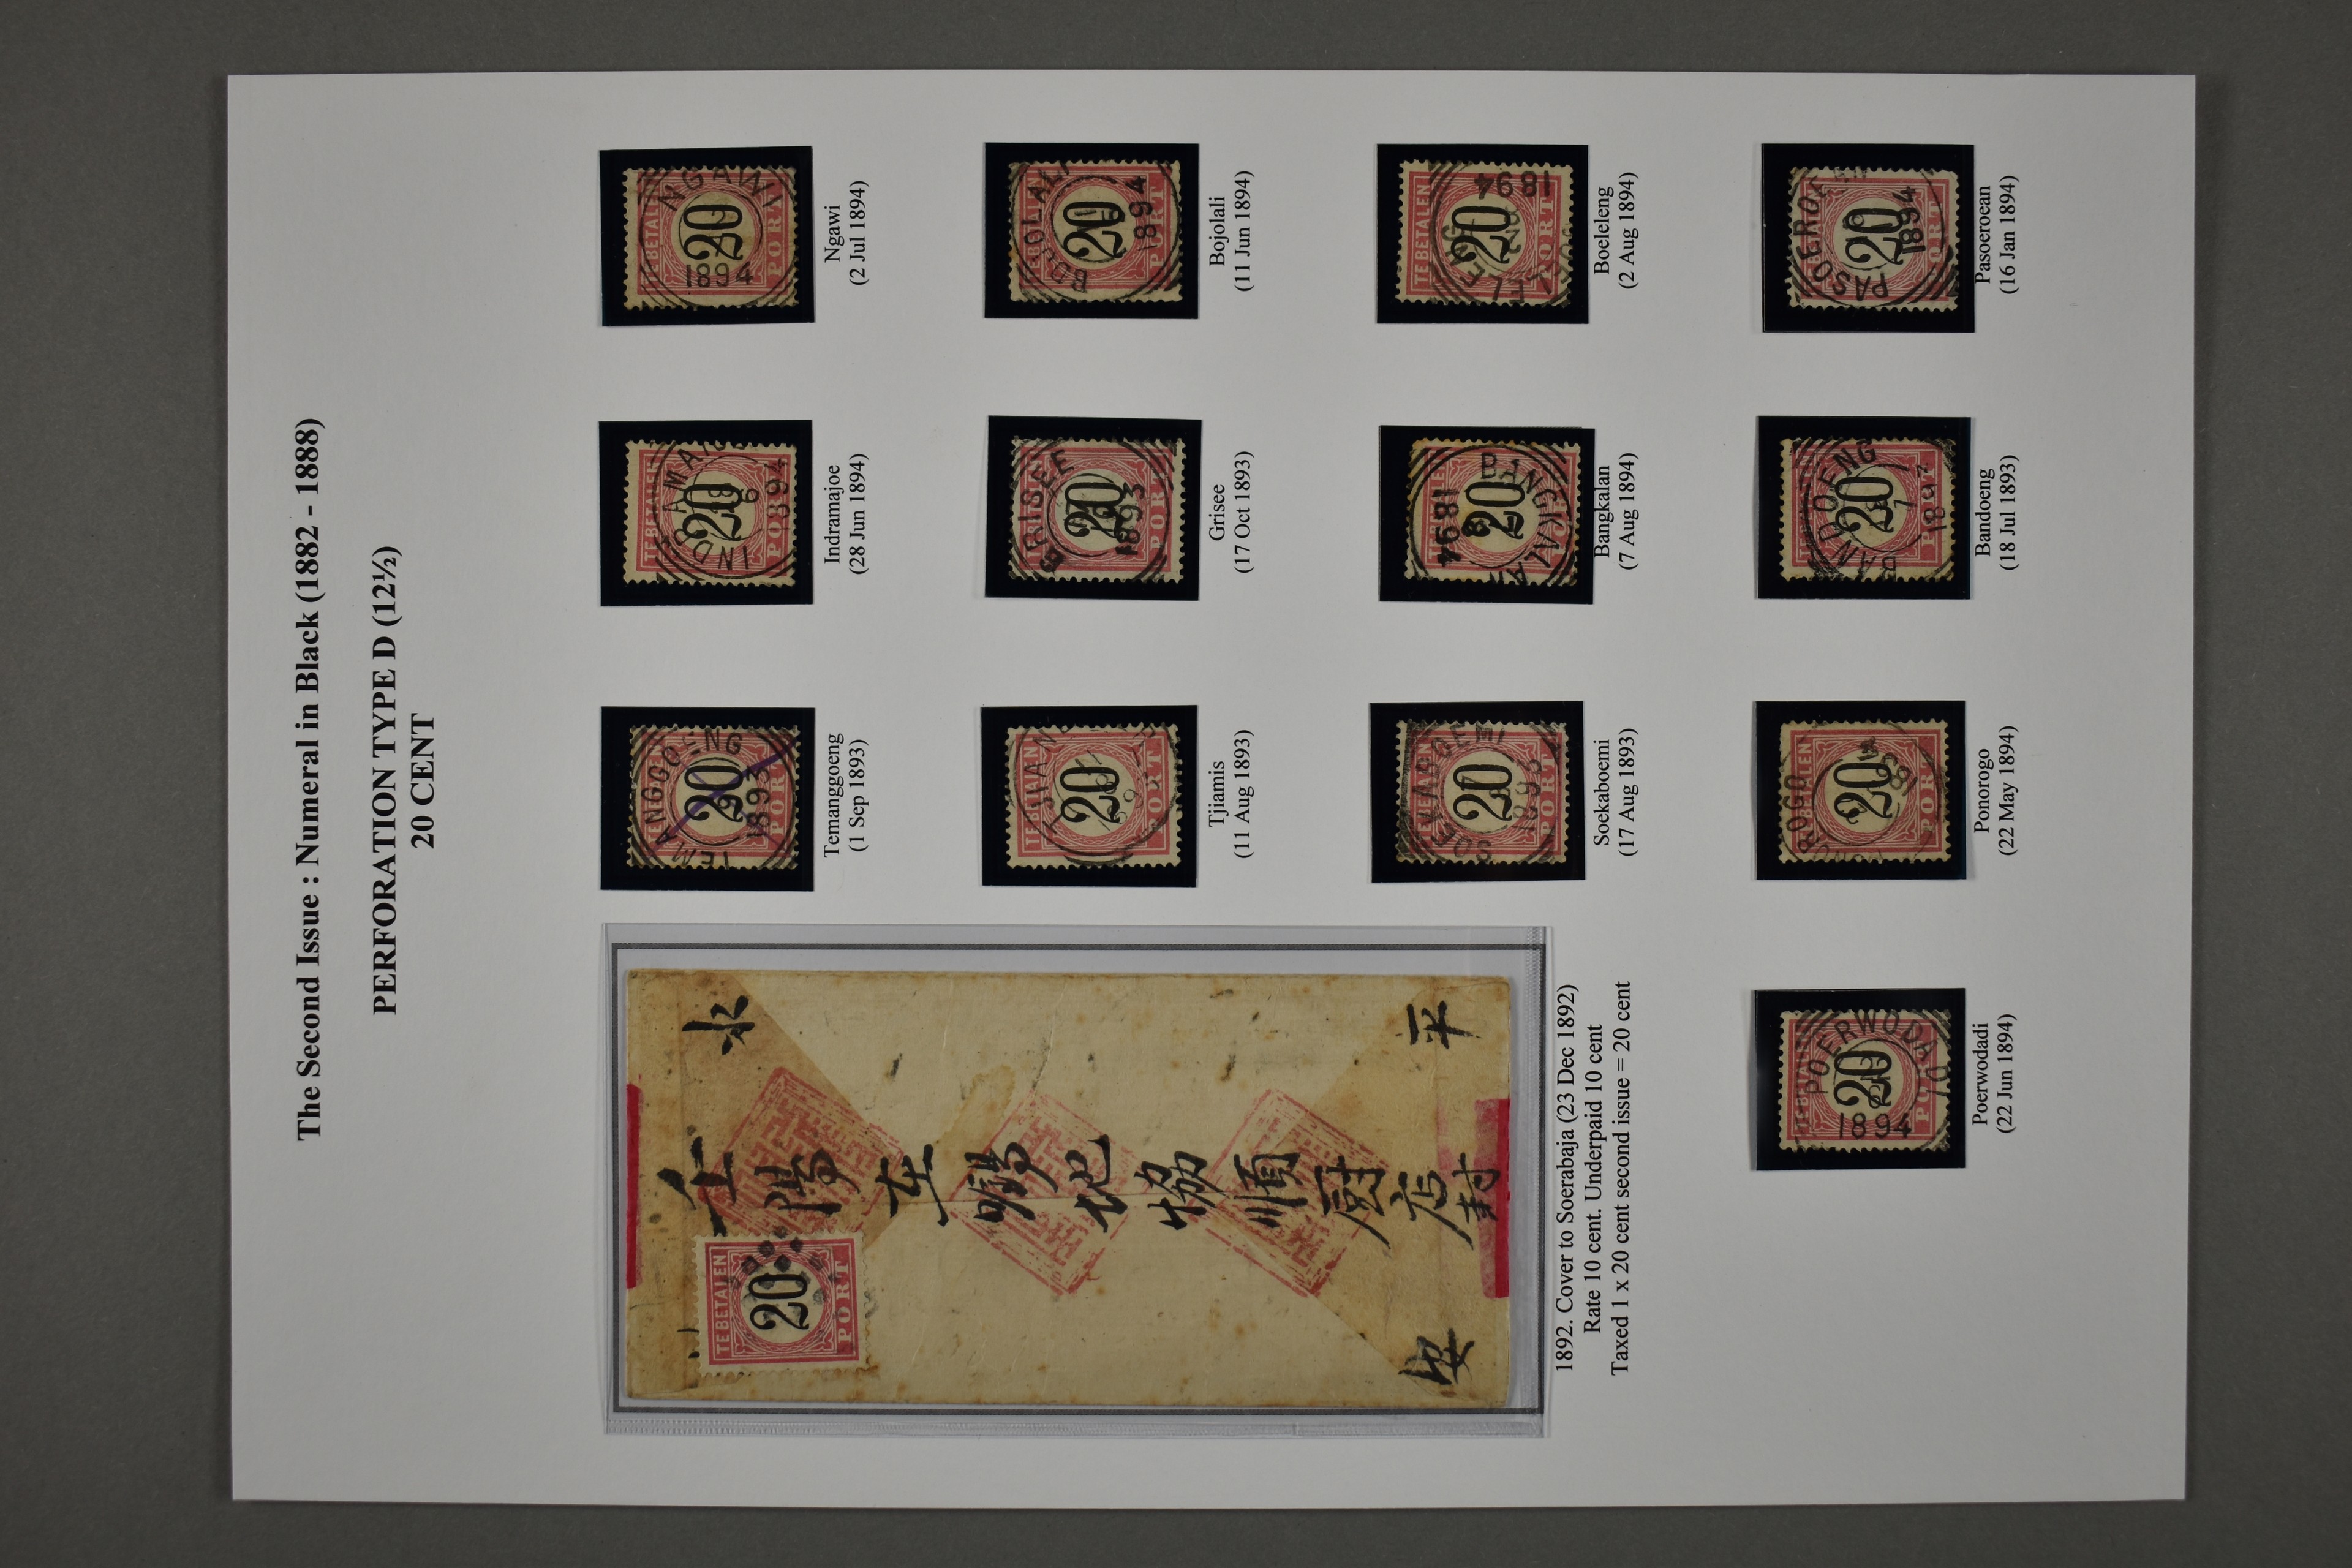 The Second Issue : Numeral in Black (1882 - 1888)
PERFORATION TYPE D (12½)
20 CENT
TE BETALEN
20
PORT
永
平
安
在
協
順
店
封
TEMANGGOENG
20
1893
PORT
Temanggoeng
(1 Sep 1893)
TE BETALEN
20
PORT
1894
Indramajoe
(28 Jun 1894)
NGAWI
BETALEN
20
1894
PORT
Ngawi
(2 Jul 1894)
20
PORT
Tjiamis
(11 Aug 1893)
GRISEE
20
1893
PORT
Grisee
(17 Oct 1893)
20
1894
PORT
Bojolali
(11 Jun 1894)
1892. Cover to Soerabaja (23 Dec 1892)
Rate 10 cent. Underpaid 10 cent
Taxed 1 x 20 cent second issue = 20 cent
20
PORT
Soekaboemi
(17 Aug 1893)
1894
20
BANGKALAN
Bangkalan
(7 Aug 1894)
TE BETALEN
20
1894
PORT
Boeleleng
(2 Aug 1894)
POERWODADI
20
1894
PORT
Poerwodadi
(22 Jun 1894)
20
PORT
Ponorogo
(22 May 1894)
BANDOENG
20
PORT
Bandoeng
(18 Jul 1893)
PASOEROEAN
20
1894
Pasoeroean
(16 Jan 1894)